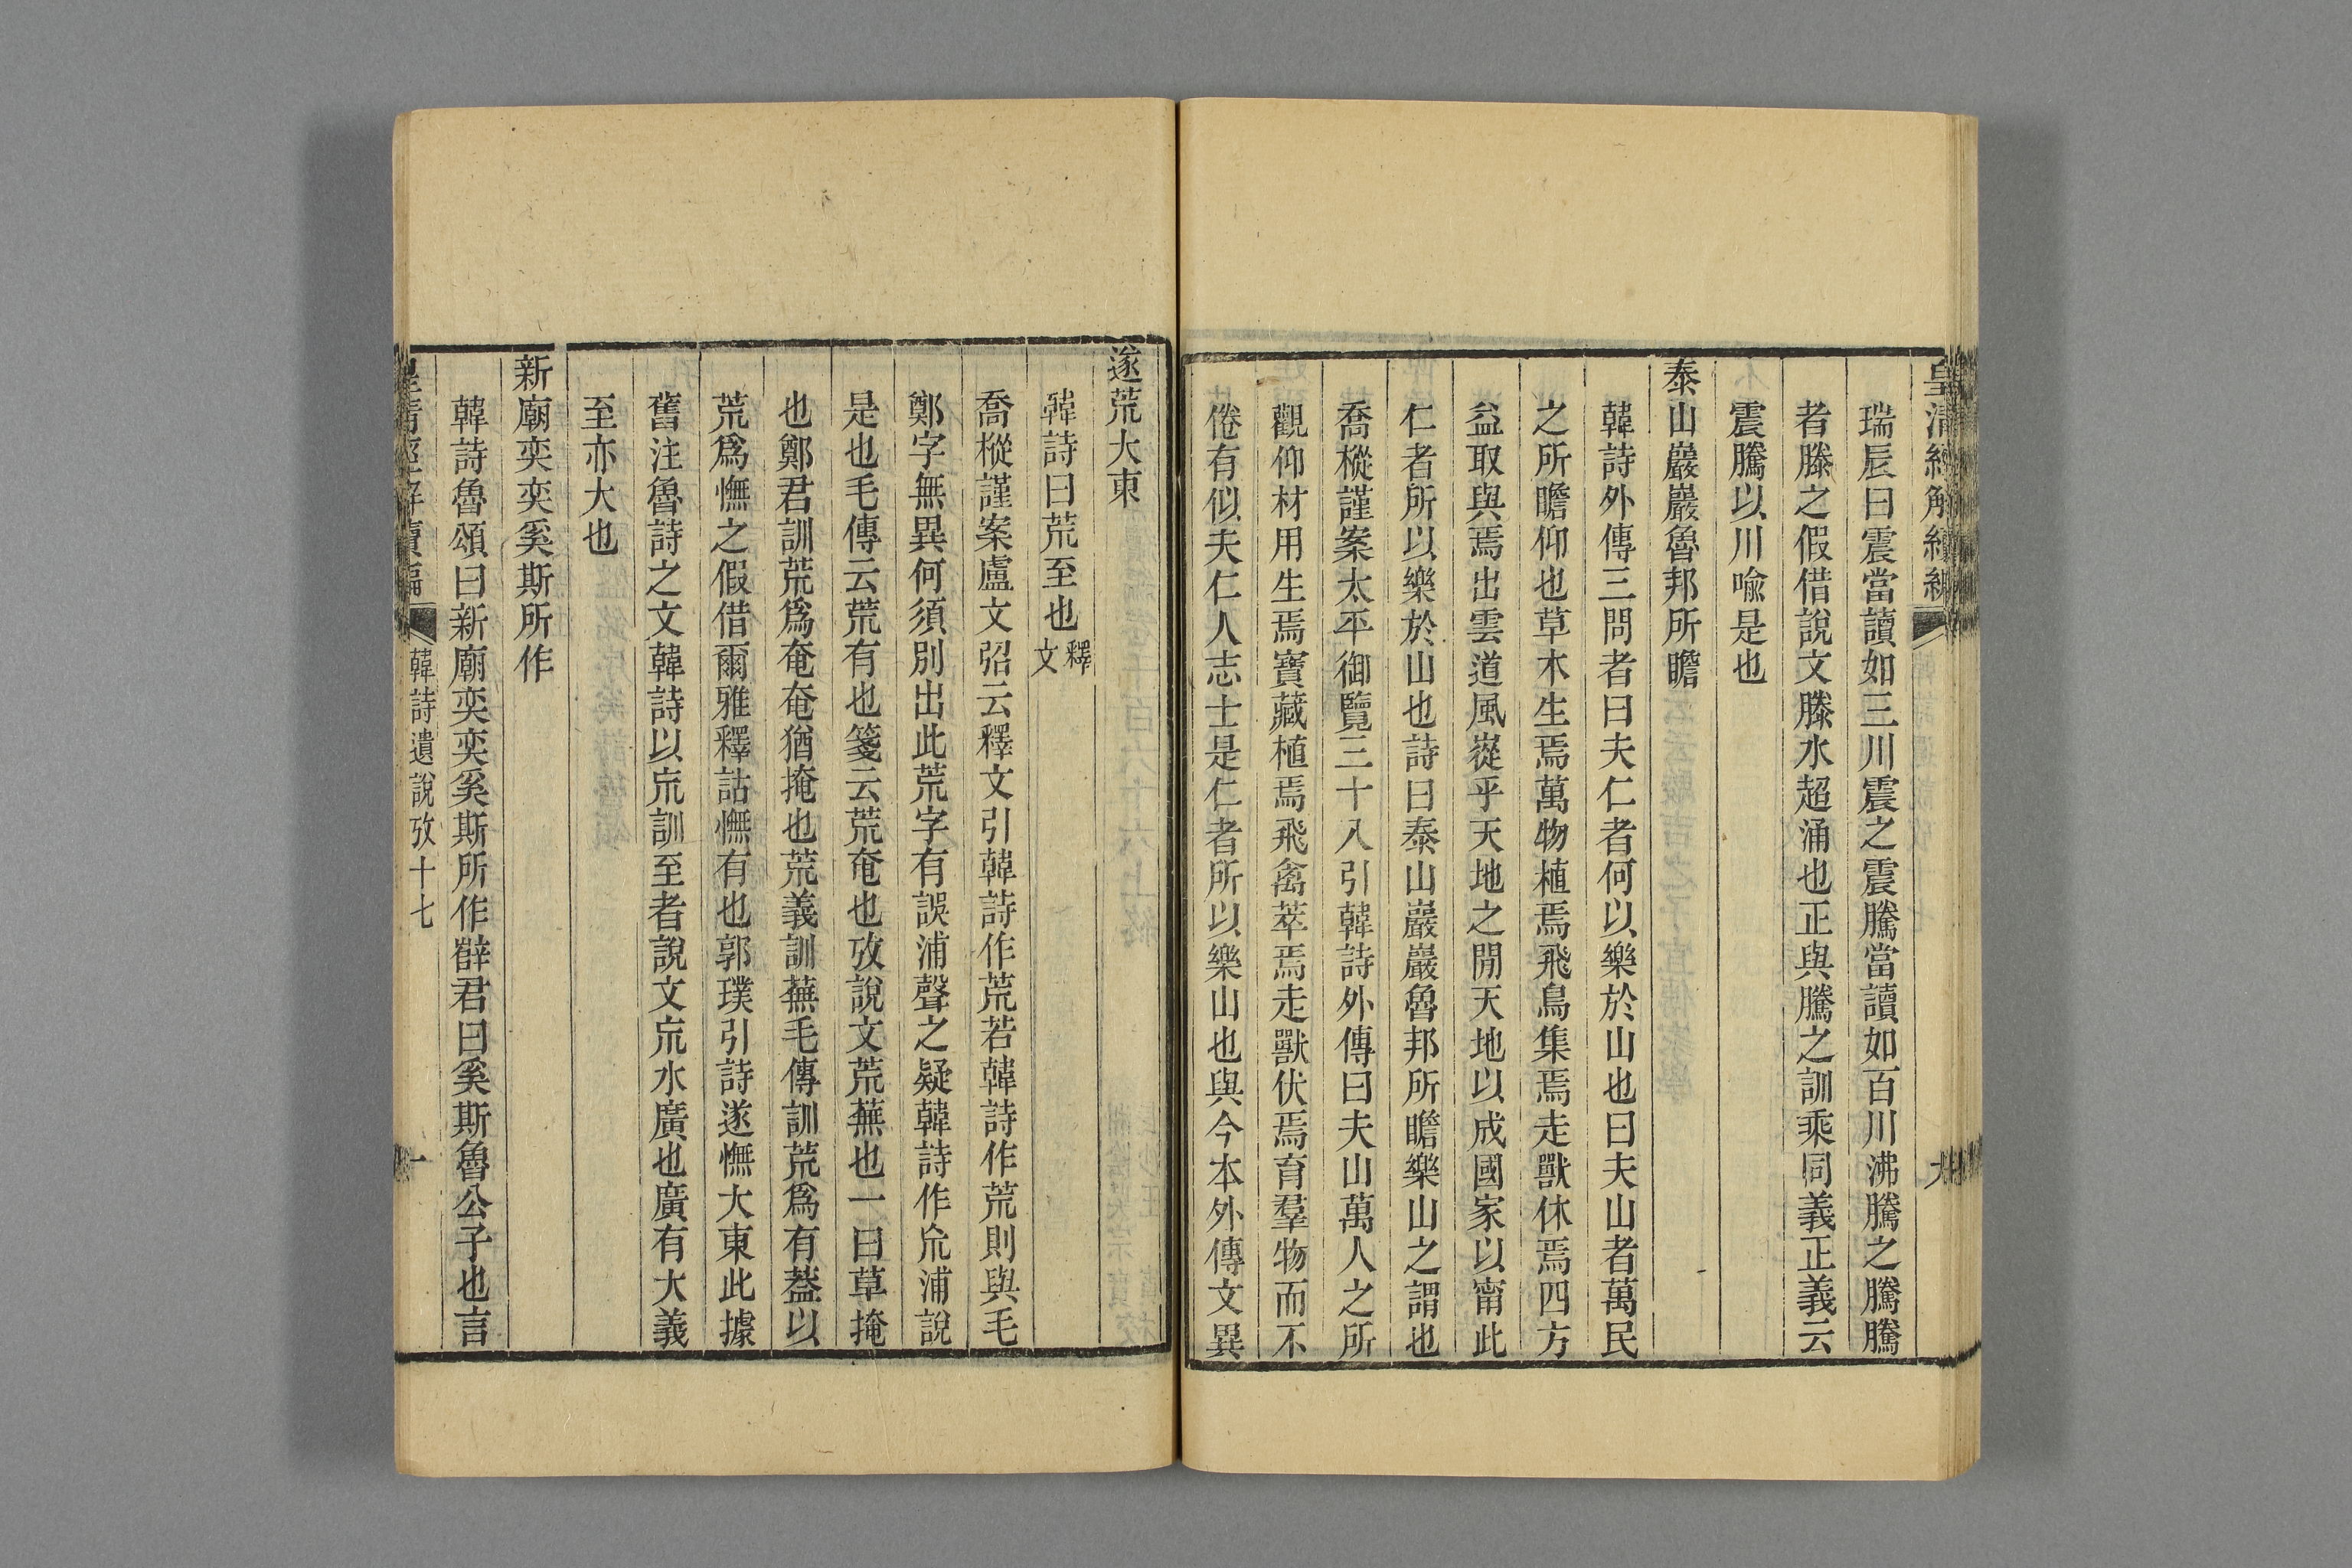 皇清經解續編
瑞辰曰震當讀如三川震之震騰當讀如百川沸騰之騰騰
者滕之假借說文滕水超涌也正與騰之訓乘同義正義云
震騰以川喻是也
泰山巖巖魯邦所瞻
韓詩外傳三問者曰夫仁者何以樂於山也曰夫山者萬民
之所瞻仰也草木生焉萬物植焉飛鳥集焉走獸休焉四方
益取與焉出雲道風嵷乎天地之閒天地以成國家以甯此
仁者所以樂於山也詩曰泰山巖巖魯邦所瞻樂山之謂也
喬樅謹案太平御覽三十八引韓詩外傳曰夫山萬人之所
觀仰材用生焉寶藏植焉飛禽萃焉走獸伏焉育羣物而不
倦有似夫仁人志士是仁者所以樂山也與今本外傳文異
遂荒大東
韓詩曰荒至也釋文
喬樅謹案盧文弨云釋文引韓詩作荒若韓詩作荒則與毛
鄭字無異何須別出此荒字有誤浦聲之疑韓詩作㡆浦說
是也毛傳云荒有也箋云荒奄也攷說文荒蕪也一曰草掩
也鄭君訓荒爲奄奄猶掩也荒義訓蕪毛傳訓荒爲有葢以
荒爲憮之假借爾雅釋詁憮有也郭璞引詩遂憮大東此據
舊注魯詩之文韓詩以㡆訓至者說文㡆水廣也廣有大義
至亦大也
新廟奕奕奚斯所作
韓詩魯頌曰新廟奕奕奚斯所作薛君曰奚斯魯公子也言
皇清經解續編 韓詩遺說攷十七